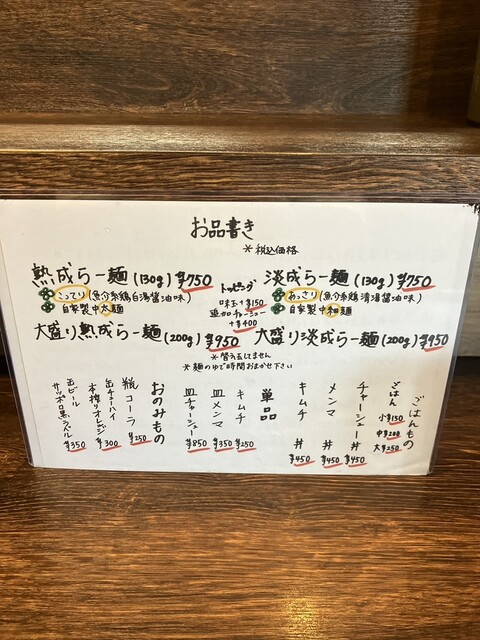 お品書き
*税込価格
熟成らー麺(130g)¥750
こってり(魚介系鶏白湯醤油味)
自家製中太麺
大盛り熟成らー麺(200g)¥950
トッピング
味玉+¥150
追加チャーシュー
+¥400
淡成らー麺(130g)¥750
あっさり(魚介系鶏清湯醤油味)
自家製中細麺
大盛り淡成らー麺(200g)¥950
*替え玉してません
*麺のゆで時間おまかせ下さい
ごはんもの
ごはん 小¥150
中¥200
大¥250
チャーシュー丼 ¥450
メンマ丼 ¥450
キムチ丼 ¥450
単品
キムチ ¥250
皿メンマ ¥350
皿チャーシュー ¥850
おのみもの
瓶コーラ ¥250
缶チューハイ
本搾りオレンジ ¥300
缶ビール
サッポロ黒ラベル ¥350